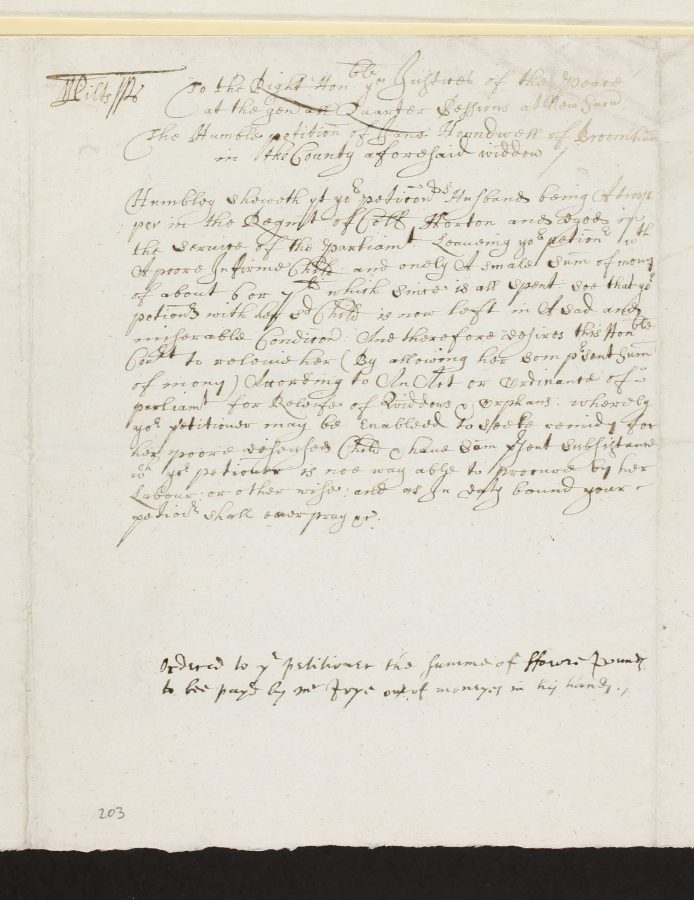 Wilts ss
To the Right Honble ye Justices of the Peace
at the genall Quarter Sessions at New Sarum
The Humble petition of Jane Houndwell of Broomham
in the County aforesaid widdow
Humbley sheweth yt yor peticonrs Husband being A troop
per in the Regmt of Coll Horton and dyed in
the service of the Parliamt Leaveing yor petionr wth
A poore Infirme Child and onely A smale sum of mony
of about 6 or 7li which since is all spent soe that yor
petionr with her sd Child is now left in A sad and
miserable Condicon And therefore desires this Honble
Court to releive her (By allowing her som psent sum
of mony) According to An Act or Ordinance of
parliamt for Releife of Widdows & orphans: whereby
yor petitioner may be Enabled to seeke remidy for
her poore diseased Child & have sum psent subsistance
wch yor petioner is noe way able to procure by her
Labour or other wise: and as In duty bound your
petior shall ever pray &c:
Ordered to ye petitioner the summe of ffower Pounds
to bee payd by mr Frye out of moneyes in his hands.
203